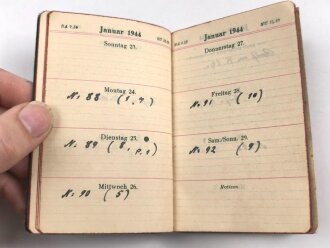 Januar 1944
Sonntag 23.
Montag 24.
N: 88 (1, 7)
Dienstag 25.
N: 89 (8, P.1)
Mittwoch 26.
N: 90 (5)
Januar 1944
Donnerstag 27.
Freitag 28.
N: 91 (10)
Sam./Sonn. 29.
N: 92 (9)
Notizen